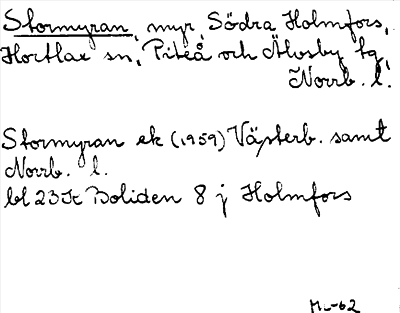 Stormyran, myr, Södra Holmfors,
Hortlax sn, Piteå och Älvsby tg,
Norrb. l.
Stormyran ek (1959) Västerb. samt
Norrb. l.
bl 23K Boliden 8 j Holmfors
M.-62